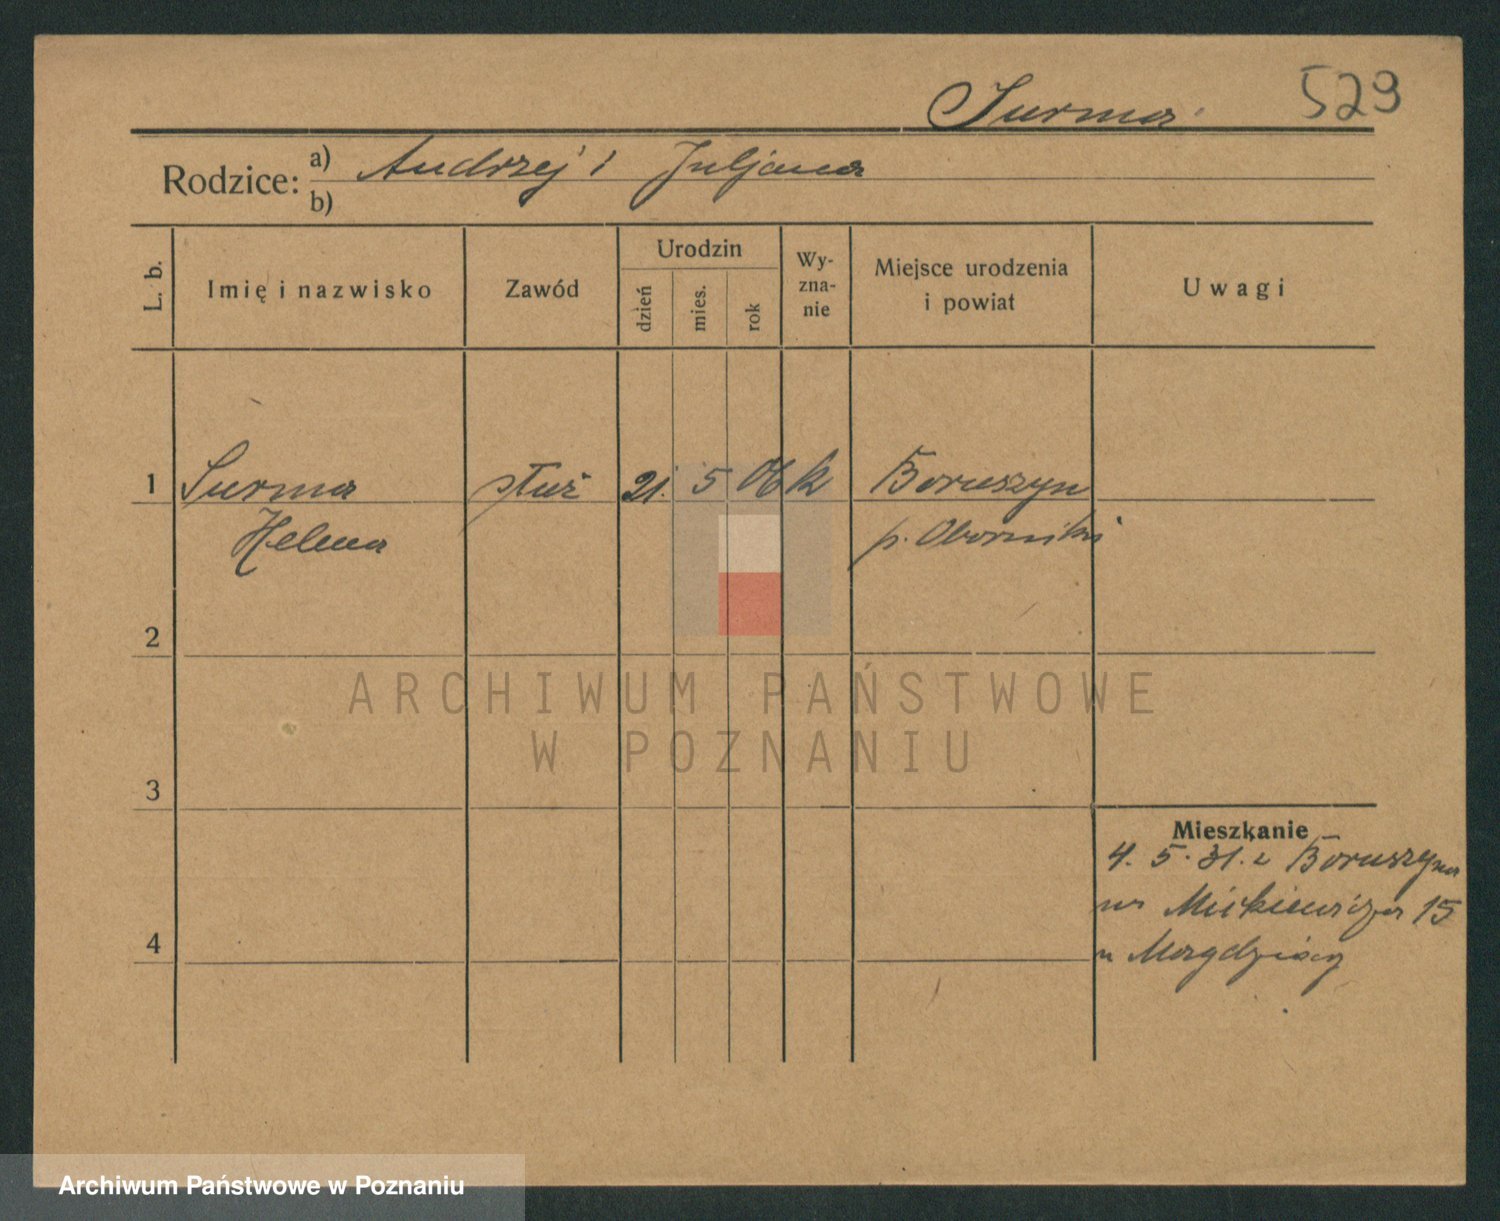 Surma 529
Rodzice: a) Andrzej i Juljana
b)
L. b.
Imię i nazwisko
Zawód
Urodzin
dzień
mies.
rok
Wy-
zna-
nie
Miejsce urodzenia
i powiat
Uwagi
1 Surma służ 21. 5 06 k Boruszyn
Helena p. Oborniki
2
3
4
Mieszkanie
4. 5. 31. z Boruszyna
na Mickiewicza 15
u
ARCHIWUM PAŃSTWOWE
W POZNANIU
Archiwum Państwowe w Poznaniu